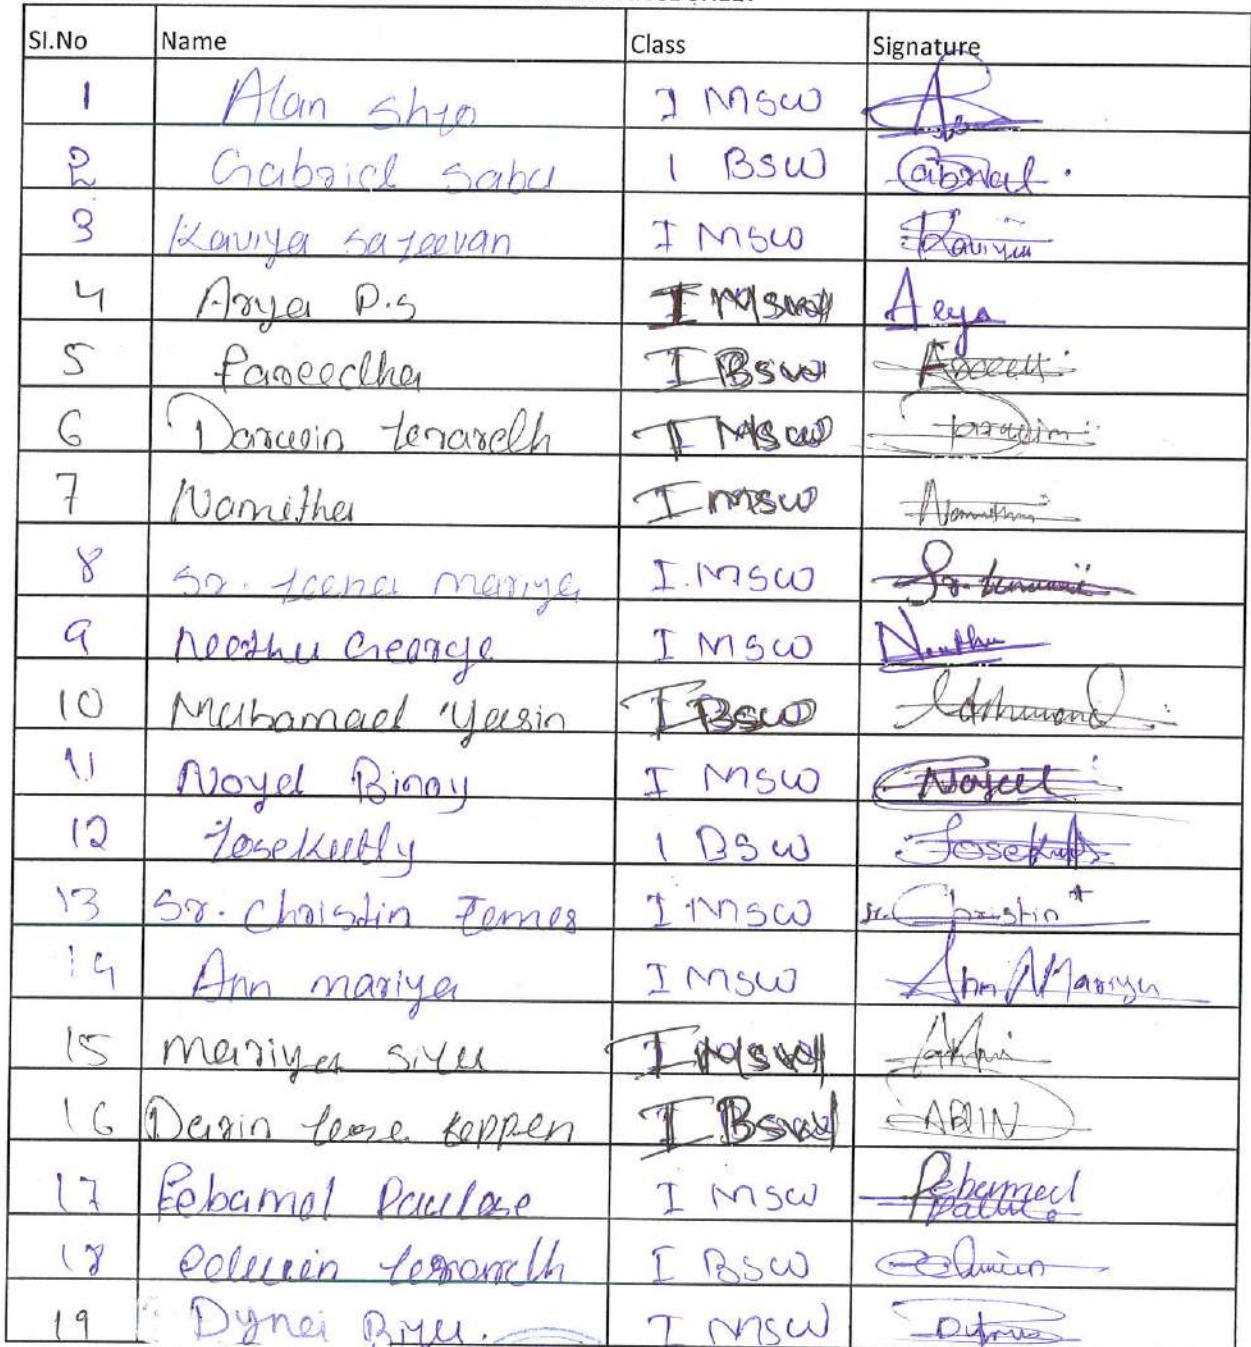 Sl.No Name Class Signature
1 Alan Shyo I MSW
2 Gabriel Sabu I BSW Gabriel
3 Kaviya Sajeevan I MSW Kaviya
4 Arya P.S I MSW Arya
5 Fareedha I BSW
6 Darwin I MSW Darwin
7 Namitha I MSW Namitha
8 Sr. Leena Mariya I.MSW Sr.
9 Neethu George I MSW Neethu
10 Muhamaed Yasin I BSW
11 Noyel Binoy I MSW Noyel
12 Josekutty I BSW Josekutty
13 Sr. Christin James I MSW Sr. Christin
14 Ann mariya I MSW Ann Mariya
15 Mariya Siju I MSW
16 Darin Jose I BSW DARIN
17 Febamol Paulose I MSW Febamol
18 Edwin I BSW Edwin
19 Dyna Biju. I MSW